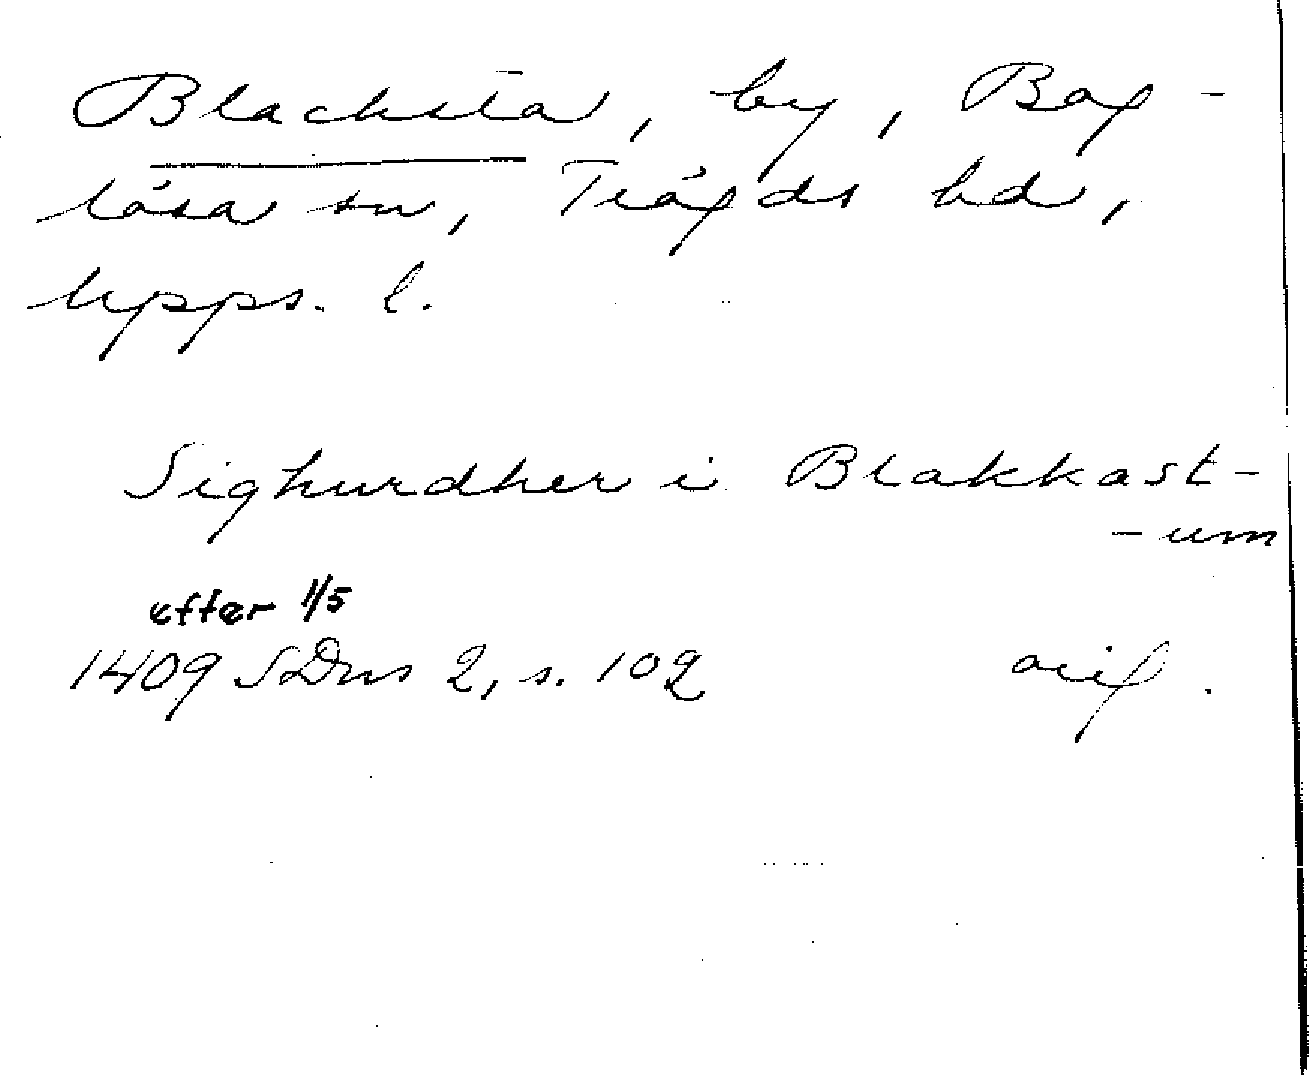 Blacksta, by, Bog-
lösa sn, Trögds hd,
Upps. l.
Sighurdher i Blakkast-
-um
efter 1/5
1409 SDns 2, s. 102 orig.